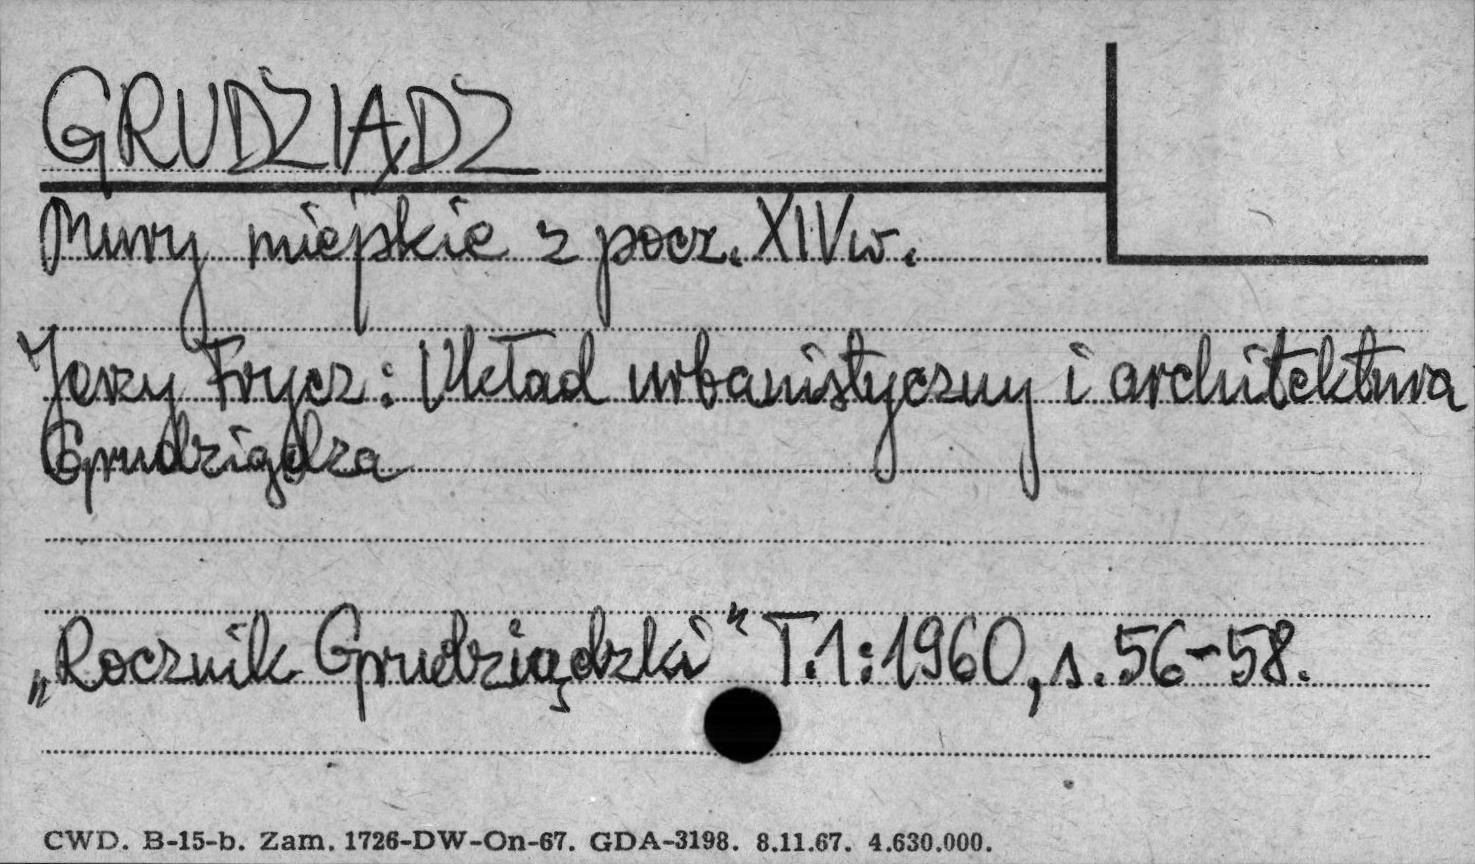 GRUDZIĄDZ
Mury miejskie z pocz. XIV w.
Jerzy Frycz: Układ urbanistyczny i architektura
Grudziądza
„Rocznik Grudziądzki” T.1:1960, s. 56-58.
CWD. B-15-b. Zam. 1726-DW-On-67. GDA-3198. 8.11.67. 4.630.000.